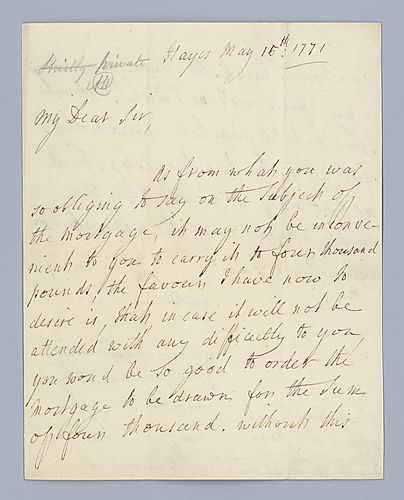 Strictly private
Hayes May 15th. 1771
My Dear Sir,
As from what you was
so obliging to say on the Subject of
the Mortgage, it may not be inconve-
nient to you to carry it to four thousand
pounds, the favour I have now to
desire is, that in case it will not be
attended with any difficulty to you
you woud be so good to order the
Mortgage to be drawn for the Sum
of four thousand. without this